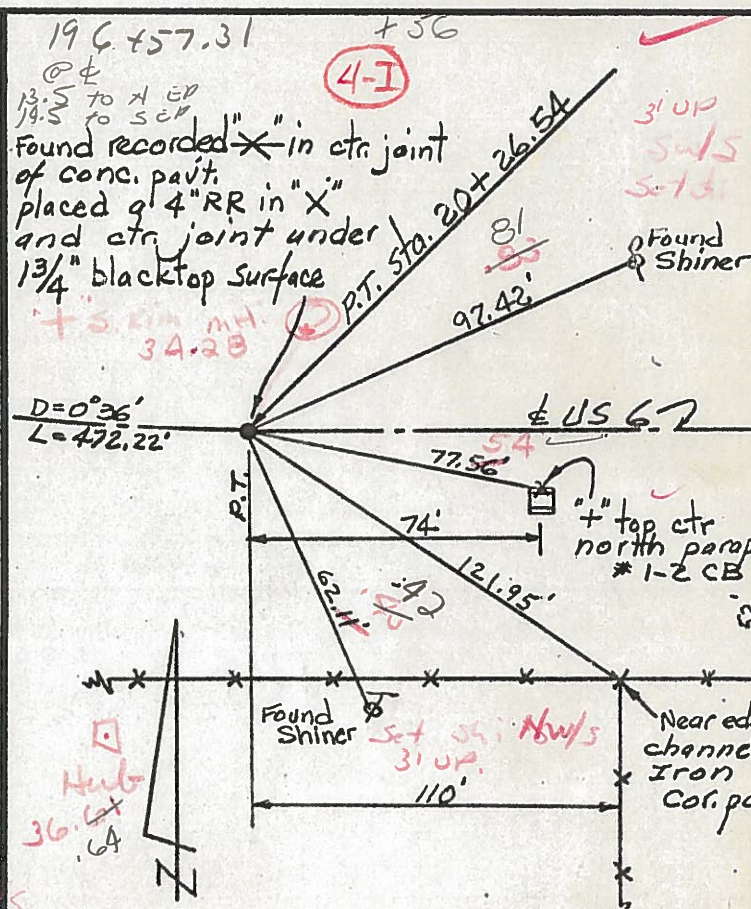 196+57.31
+56
@ ℄
13.5 to N EP
19.5 to S EP
4-I
Found recorded "X" in ctr. joint
of conc. pav't.
placed a 4" RR in "X"
and ctr. joint under
1 3/4" blacktop surface
P.T. Sta. 20+26.54
3' UP
SW/S
81
Found
Shiner
97.42'
"+" S. rim mH.
34.28
D=0°36'
L=472.22'
℄ US 6
54
77.56'
P.T.
74'
"+" top ctr
north parap
# 1-2 CB
62.11'
.42
121.95'
Found
Shiner
Set shi NW/S
3' UP.
Near ed
channe
Iron
Cor. po
Hub
36.61
.64
110'
N